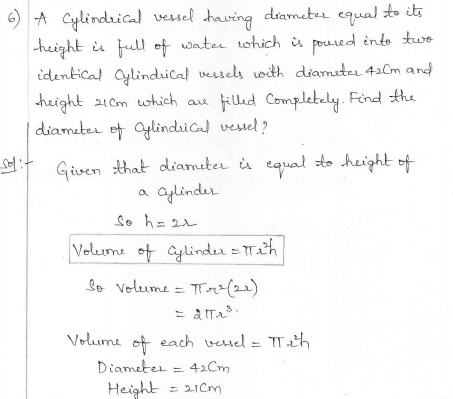 6) A Cylindrical vessel having diameter equal to its
height is full of water which is poured into two
identical Cylindrical vessels with diameter 42Cm and
height 21Cm which are filled Completely. Find the
diameter of Cylindrical vessel?
Sol:- Given that diameter is equal to height of
a Cylinder
So h = 2r
Volume of Cylinder = πr²h
So Volume = πr²(2r)
= 2πr³.
Volume of each vessel = πr²h
Diameter = 42Cm
Height = 21Cm